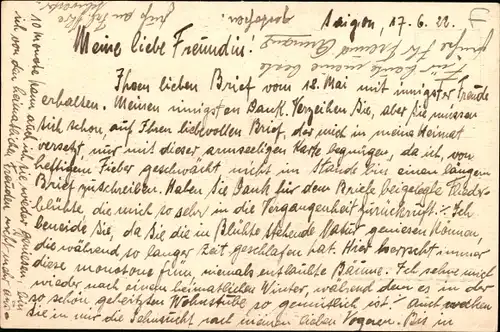 Saigon, 17.6.22.
Meine liebe Freundin!
Ihren lieben Brief vom 12. Mai mit innigster Freude
erhalten. Meinen innigsten Dank. Verzeihen Sie, aber Sie müssen
sich schon, auf Ihren liebevollen Brief, der mich in meine Heimat
versetzt nur mit dieser armseeligen Karte begnügen, da ich, von
heftigem Fieber geschwächt nicht im Stande bin einen längern
Brief zu schreiben. Haben Sie Dank für dem Briefe beigelegte
blühte, die mich so sehr in die Vergangenheit zurückruft. Ich
beneide Sie, da Sie die in Blühte stehende Natur geniesen können,
die während so langer Zeit geschlafen hat. Hier herrscht immer
diese monotone, niemals entlaubte Bäume. Ich sehne mich
wieder nach einem heimatlichen Winter, während dem es in der
so schön geheitzten Wohnstube so gemütlich ist! auch wecken
Sie in mir die Sehnsucht nach meinen lieben Vogesen. Bis in
10 Monate kann auch ich sie wieder geniesen, bin
ich von den heimatlichen Freuden nicht mehr